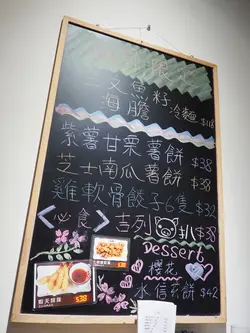 三文魚籽
海膽 冷麵 $118
紫薯甘栗薯餅 $38
芝士南瓜薯餅 $38
雞軟骨餃子6隻 $32
<必食> 吉列 扒 $38
Dessert
櫻花
水信玄餅 $42
$38
$38